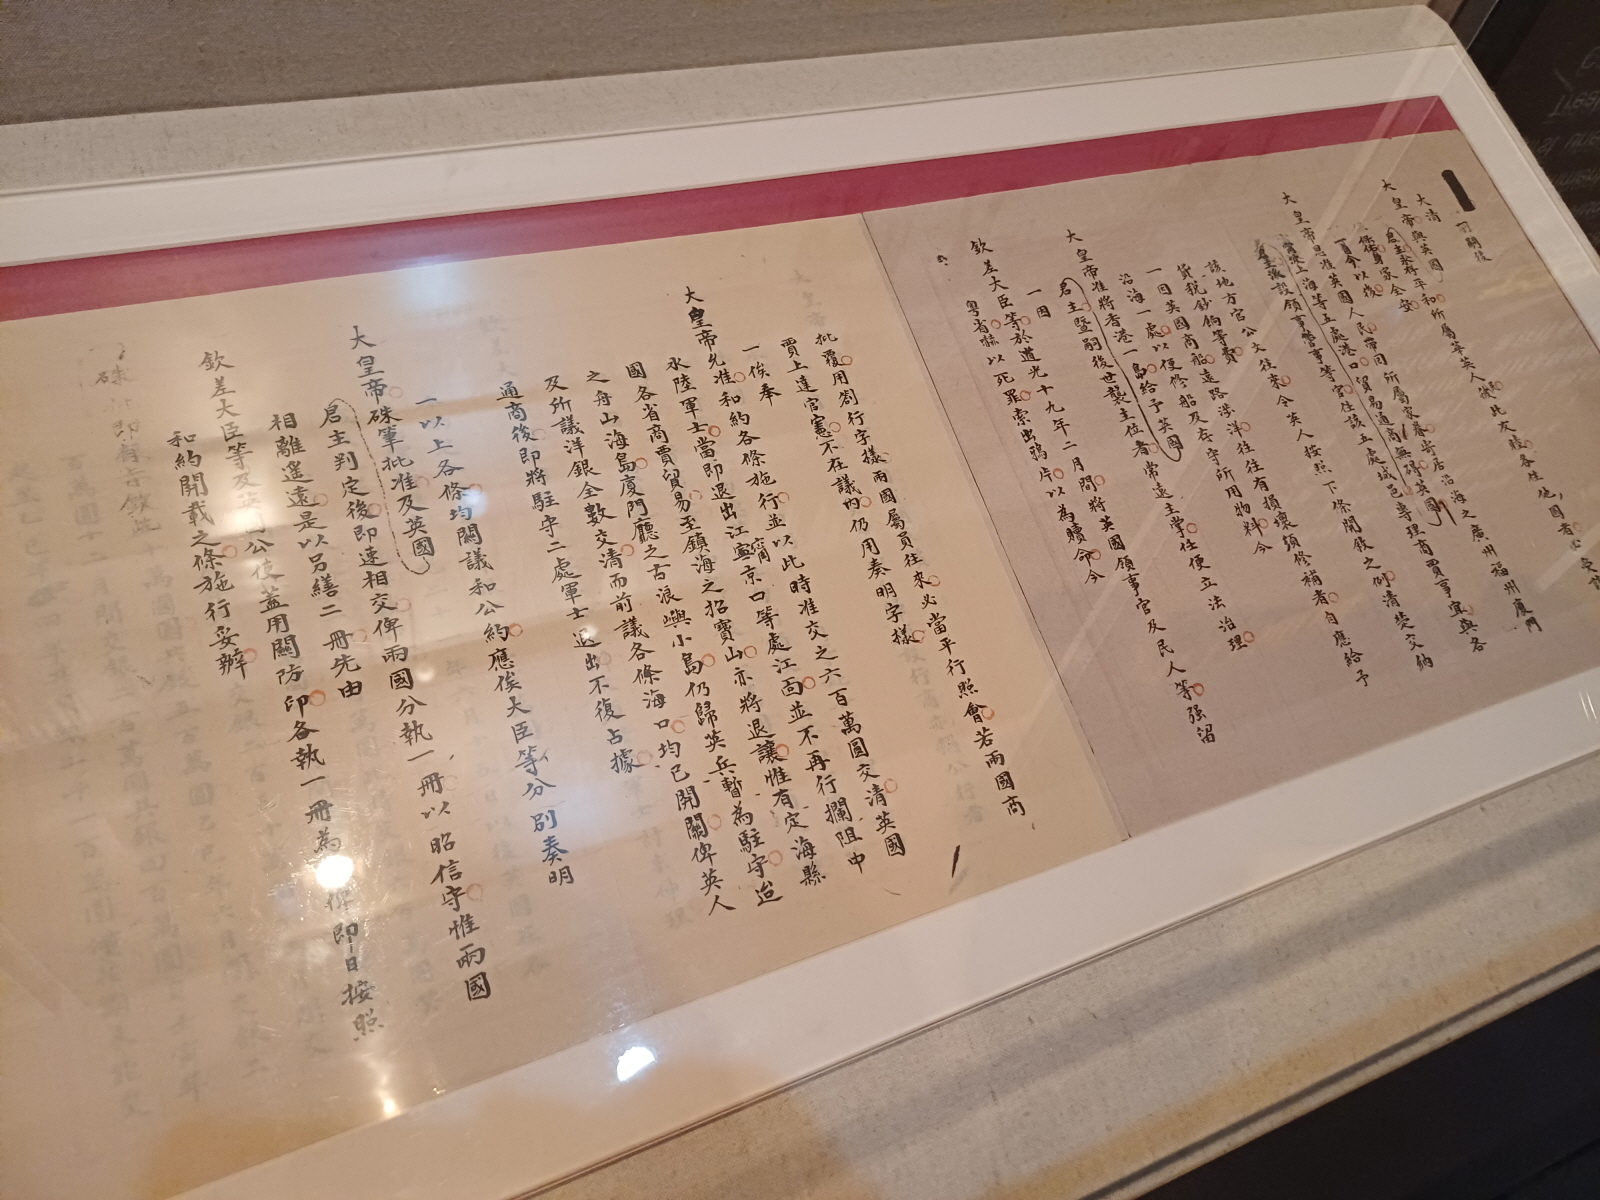 一嗣後
大清
大皇帝與英國
君主永存平和所屬華英人彼此友睦各住他國者必受該
國保佑身家全安
一自今以後
大皇帝恩准英國人民帶同所屬家眷寄居沿海之廣州福州廈門
寧波上海等五處港口貿易通商無碍英國
君主派設領事管事等官住該五處城邑專理商賈事宜與各
該地方官公文往來令英人按照下條開敘之例清楚交納
貨稅鈔餉等費
一因英國商船遠路涉洋往往有損壞須修補者自應給予
沿海一處以便修船及存守所用物料今
大皇帝准將香港一島給予英國
君主暨嗣後世襲主位者常遠主掌任便立法治理
一因
欽差大臣等於道光十九年二月間將英國領事官及民人等强留
粵省嚇以死罪索出鴉片以為贖命今
批覆用劄行字樣兩國屬員往來必當平行照會若兩國商
賈上達官憲不在議內仍用奏明字樣
一俟奉
大皇帝允准和約各條施行並以此時准交之六百萬圓交清英國
水陸軍士當即退出江寧京口等處江面並不再行攔阻中
國各省商賈貿易至鎮海之招寶山亦將退讓惟有定海縣
之舟山海島廈門廳之古浪嶼小島仍歸英兵暫為駐守迨
及所議洋銀全數交清而前議各條海口均已開闢俾英人
通商後即將駐守二處軍士退出不復占據
一以上各條均關議和公約應俟大臣等分別奏明
大皇帝硃筆批准及英國
君主判定後即速相交俾兩國分執一冊以昭信守惟兩國
相離遙遠是以另繕二冊先由
欽差大臣等及英國公使蓋用關防印各執一冊為 俾即日按照
和約開載之條施行妥辦